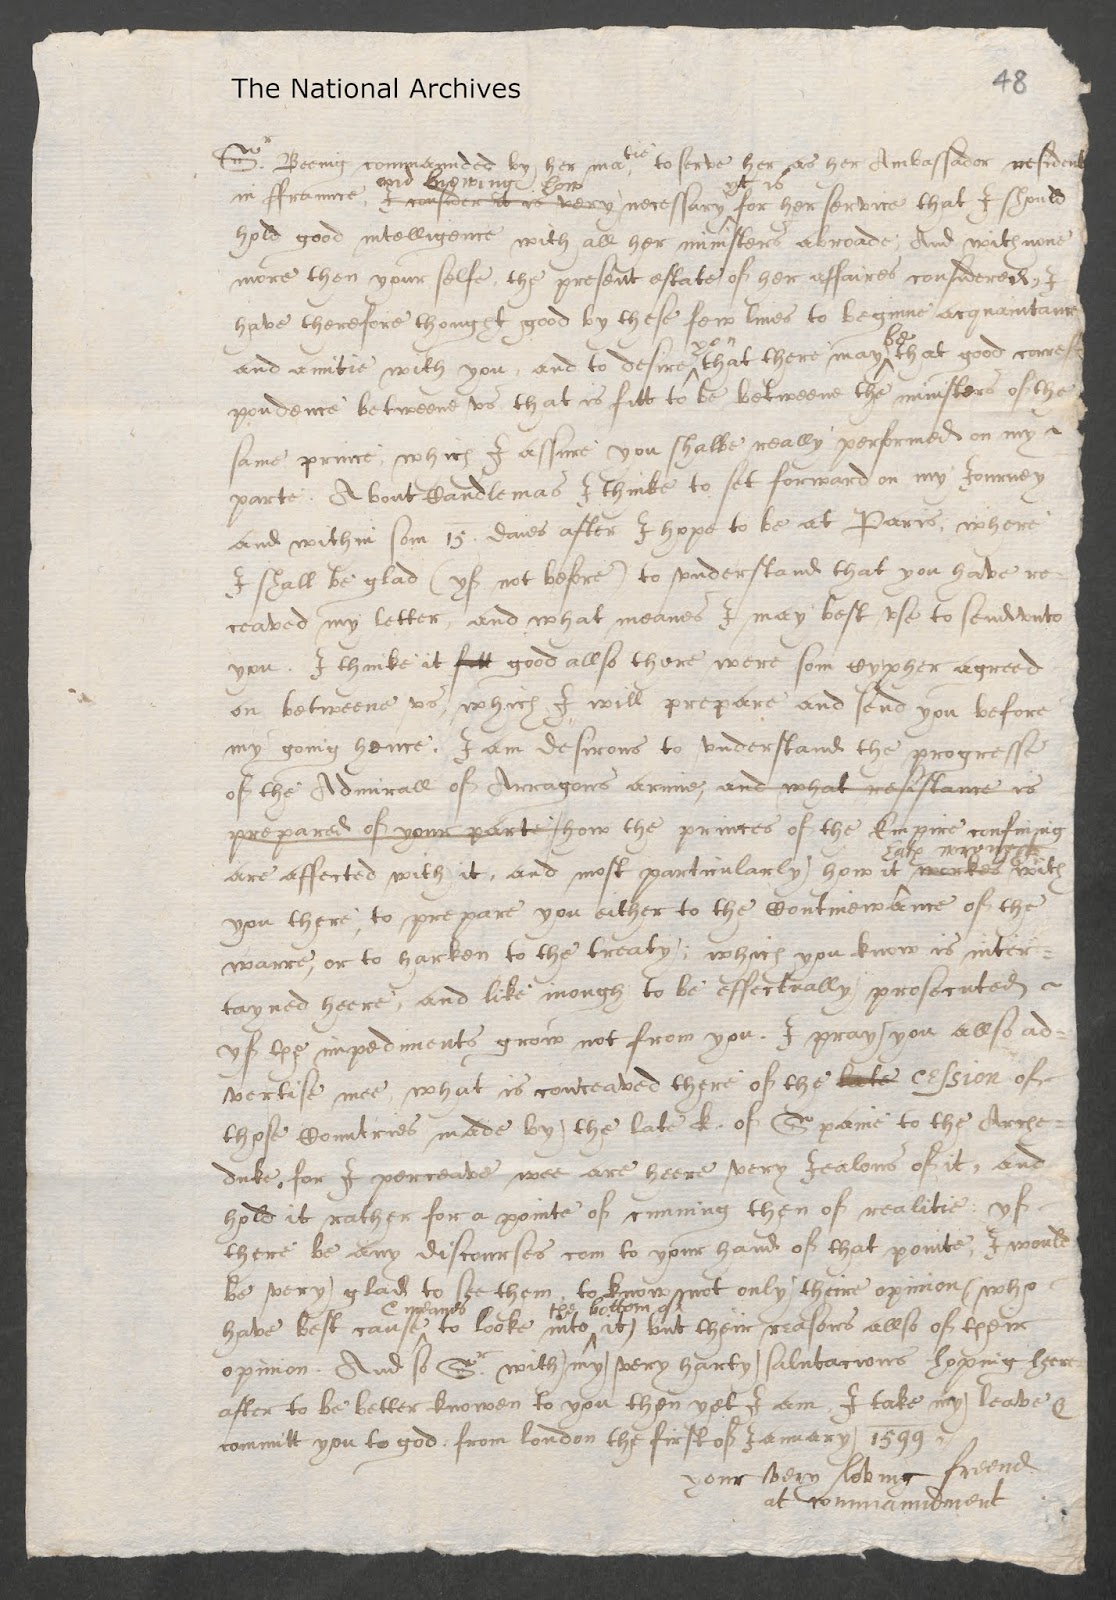 The National Archives
48
Sr. Beeing commaunded by her matie to serve her as her Ambassador resident
and knowing how yt is
in ffraunce, I consider it is very necessary for her service that I should
hold good intelligence with all her ministers abroade; And with none
more then your selfe, the present estate of her affaires considered, I
have therefore thought good by these few lines to beginne acquaintance
you be
and amitie with you, and to desire that there may that good corres-
pondence betweene vs that is fitt to be betweene the ministers of the
same prince, which I assure you shalbe really performed on my
parte. About Candlemas I thinke to set forward on my Journey
and within som 15. daies after I hope to be at Paris, where
I shall be glad (yf not before) to vnderstand that you have re-
ceaved my letter, and what meanes I may best vse to send vnto
you. I thinke it fitt good allso there were som Cypher agreed
on betweene vs, which I will prepare and send you before
my going hence. I am desirous to vnderstand the progresse
of the Admirall of Arragons armie, and what resistance is
prepared of your parte, how the princes of the Empire confining
hath wrought
are affected with it, and most particularly how it workes with
you there, to prepare you either to the Continewance of the
warre, or to harken to the treaty; which you know is inter-
tayned heere, and like inough to be effectually prosecuted
yf the impediments grow not from you. I pray you allso ad-
vertise mee, what is conceaved there of the late Cession of
those Countries made by the late k. of Spaine to the Arche-
duke, for I perceave wee are heere very Jealous of it, and
hold it rather for a pointe of cunning then of realitie: yf
there be any discourses com to your hand of that pointe, I would
be very glad to see them, to know not only theire opinion (who
& meanes the bottom of
have best cause to looke into it) but their reasons allso of their
opinion. And so Sr. with my very harty salutacions hoping here-
after to be better knowen to you then yet I am, I take my leave &
committ you to god. from london the first of January 1599.
your very loving freend
at commaundment